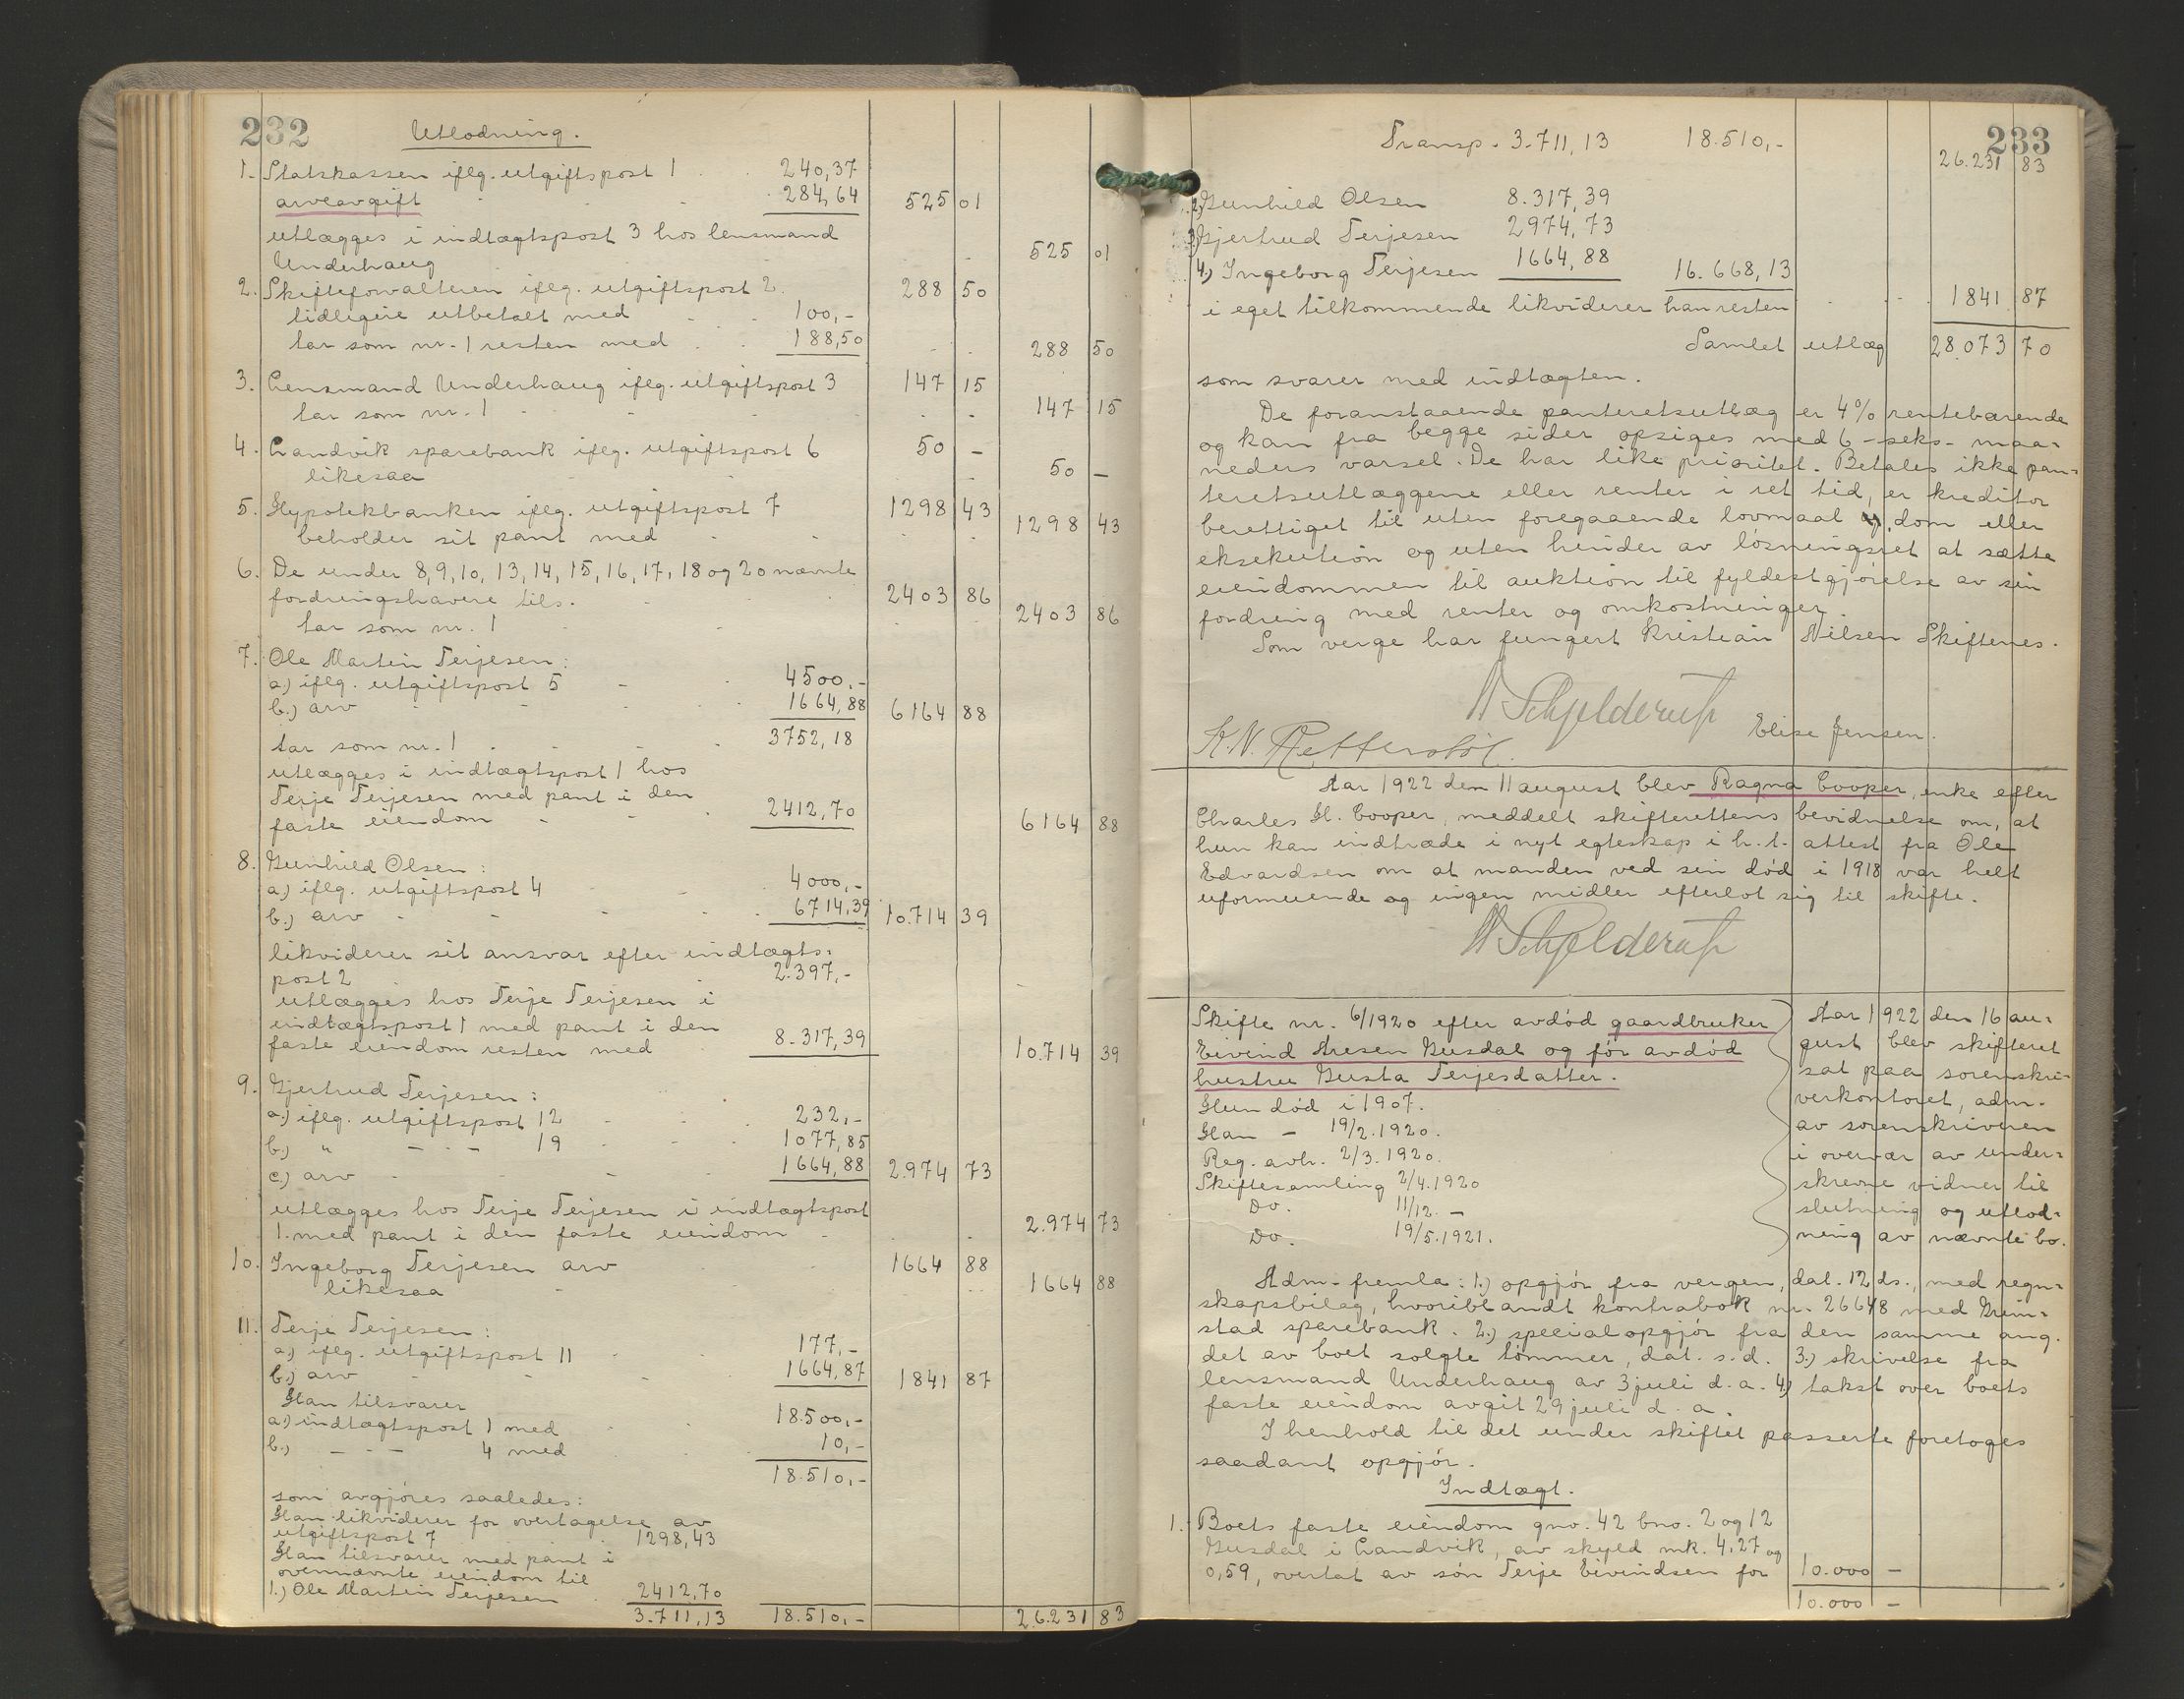 232
Utlodning.
1. Statskassen iflg. utgiftspost 1 240,37
arveavgift 284,64 525 01
utlægges i indtægtspost 3 hos lensmand
Underhaug 525 01
2. Skifteforvalteren iflg. utgiftspost 2 288 50
tidligere utbetalt med 100,-
tar som nr. 1 resten med 188,50 288 50
3. Lensmand Underhaug iflg. utgiftspost 3 147 15
tar som nr. 1 147 15
4. Landvik sparebank iflg. utgiftspost 6 50 -
likesaa 50 -
5. Hypotekbanken iflg. utgiftspost 7 1298 43
beholder sit pant med 1298 43
6. De under 8, 9, 10, 13, 14, 15, 16, 17, 18 og 20 nævnte
fordringshavere tils. 2403 86
tar som nr. 1 2403 86
7. Ole Martin Terjesen:
a.) iflg. utgiftspost 5 4500,-
b.) arv 1664,88 6164 88
tar som nr. 1 3752,18
utlægges i indtægtspost 1 hos
Terje Terjesen med pant i den
faste eiendom 2412,70 6164 88
8. Gunhild Olsen:
a.) iflg. utgiftspost 4 4000,-
b.) arv 6714,39 10.714 39
likviderer sit ansvar efter indtægts-
post 2 2.397,-
utlægges hos Terje Terjesen i
indtægtspost 1 med pant i den
faste eiendom resten med 8.317,39 10.714 39
9. Gjertrud Terjesen:
a.) iflg. utgiftspost 12 232,-
b.) " - - - 19 1077,85
c.) arv 1664,88 2.974 73
utlægges hos Terje Terjesen i indtægtspost
1. med pant i den faste eiendom 2.974 73
10. Ingeborg Terjesen arv 1664 88
likesaa 1664 88
11. Terje Terjesen:
a.) iflg. utgiftspost 11 177,-
b.) arv 1664,87 1841 87
Han tilsvarer
a.) indtægtspost 1 med 18.500,-
b.) - - - 4 med 10,-
18.510,-
som avgjøres saaledes:
Han likviderer for overtagelse av
utgiftspost 7 1298,43
Han tilsvarer med pant i
ovennævnte eiendom til
1.) Ole Martin Terjesen 2412,70
3.711,13 18.510,- 26.231 83
233
Transp. 3.711,13 18.510,- 26.231 83
2.) Gunhild Olsen 8.317,39
3.) Gjertrud Terjesen 2974,73
4.) Ingeborg Terjesen 1664,88 16.668,13
i eget tilkommende likviderer han resten 1841 87
Samlet utlæg 28.073 70
som svarer med indtægten.
De foranstaaende panteretsutlæg er 4% rentebærende
og kan fra begge sider opsiges med 6 - seks - maa-
neders varsel. De har like prioritet. Betales ikke pan-
teretsutlæggene eller renter i ret tid, er kreditor
berettiget til uten foregaaende lovmaal og dom eller
eksekution og uten hinder av løsningsret at sætte
eiendommen til auktion til fyldestgjørelse av sin
fordring med renter og omkostninger.
Som verge har fungert Kristian Nilsen Skiftenes.
Schjelderup
K. N. Retterstøl. Elise Jensen.
Aar 1922 den 11 august blev Ragna Cooper, enke efter
Charles H. Cooper, meddelt skifterettens bevidnelse om, at
hun kan indtræde i nyt egteskap i h. t. attest fra Ole
Edvardsen om at manden ved sin død i 1918 var helt
uformuende og ingen midler efterlot sig til skifte.
Schjelderup
Skifte nr. 6/1920 efter avdød gaardbruker
Eivind Aresen Gusdal og før avdød
hustru Gusta Terjesdatter.
Hun død i 1907.
Han - 19/2.1920.
Reg. avh. 2/3.1920.
Skiftesamling 2/4.1920
Do. 11/12. -
Do. 19/5.1921.
Aar 1922 den 16 au-
gust blev skifteret
sat paa sorenskri-
verkontoret, adm.
av sorenskriveren
i overvær av under-
skrevne vidner til
slutning og utlod-
ning av nævnte bo.
Adm. fremla: 1.) opgjør fra vergen, dat. 12 ds., med regn-
skapsbilag, hvoriblandt kontrabok nr. 26648 med Grim-
stad sparebank. 2.) specialopgjør fra den samme ang.
det av boet solgte tømmer, dat. s. d. 3.) skrivelse fra
lensmand Underhaug av 3 juli d. a. 4.) takst over boets
faste eiendom avgit 29 juli d. a.
I henhold til det under skiftet passerte foretoges
saadant opgjør.
Indtægt.
1. Boets faste eiendom gno. 42 bno. 2 og 12
Gusdal i Landvik, av skyld mk. 4,27 og
0,59, overtat av søn Terje Eivindsen for 10.000 -
10.000 -